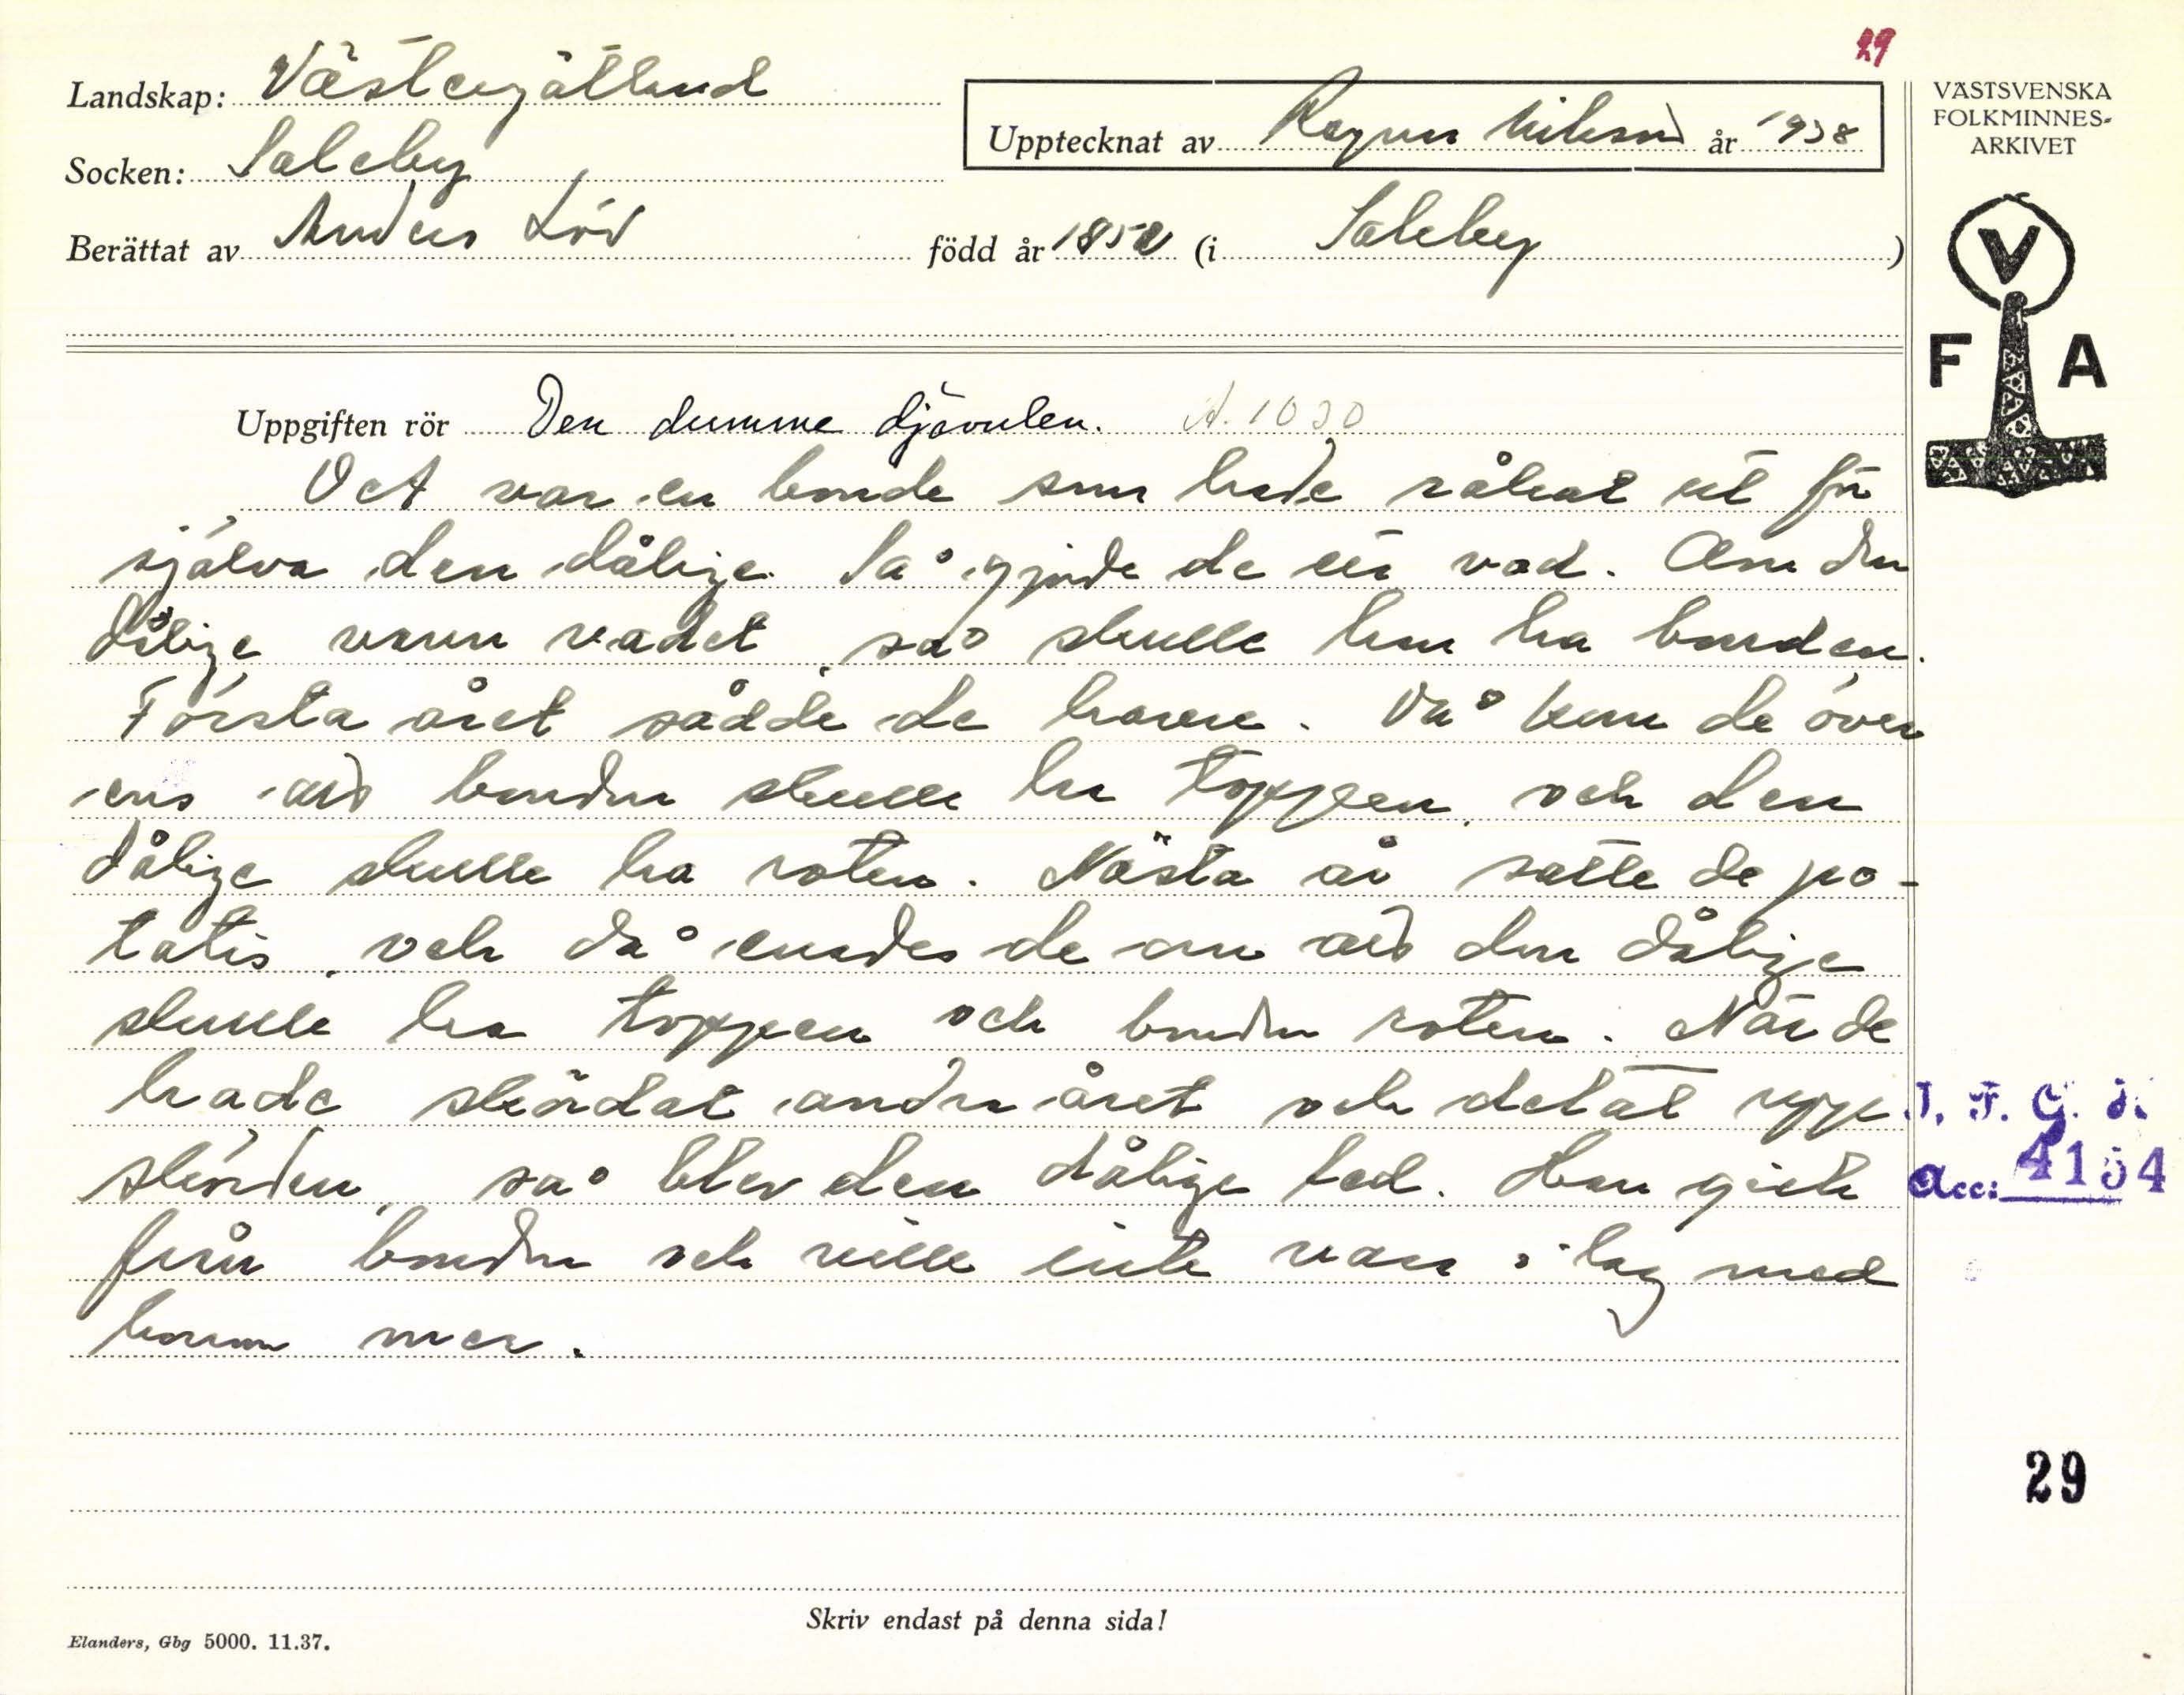 29
Landskap: Västergötland
Upptecknat av Ragnar Nilsson år 1938
Socken: Saleby
Berättat av Anders Löv född år 1850 (i Saleby)
VÄSTSVENSKA
FOLKMINNES-
ARKIVET
V
F A
Uppgiften rör Den dumme djävulen. A. 1030
Det var en bonde som hade råkat ut för
själva den dålige. Så gjorde de ett vad. Om den
dålige vann vadet, så skulle han ha bonden.
Första året sådde de havre. Då kom de över-
ens att bonden skulle ha toppen, och den
dålige skulle ha roten. Nästa år satte de po-
tatis, och då enades de om att den dålige
skulle ha toppen och bonden roten. När de
hade skördat andra året och delat upp
skörden, så blev den dålige led. Han gick
från bonden och ville inte vara i lag med
honom mer.
I. F. G. H.
Acc: 4154
29
Skriv endast på denna sida!
Elanders, Gbg 5000. 11.37.